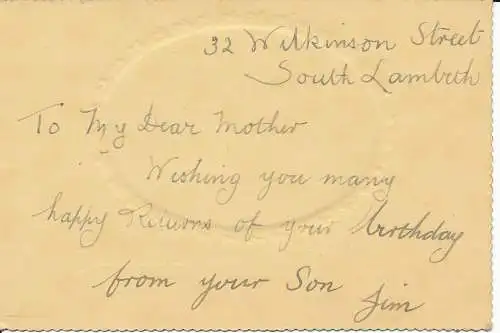 32 Wilkinson Street
South Lambeth
To My Dear Mother
Wishing you many
happy Returns of your birthday
from your Son
Jim